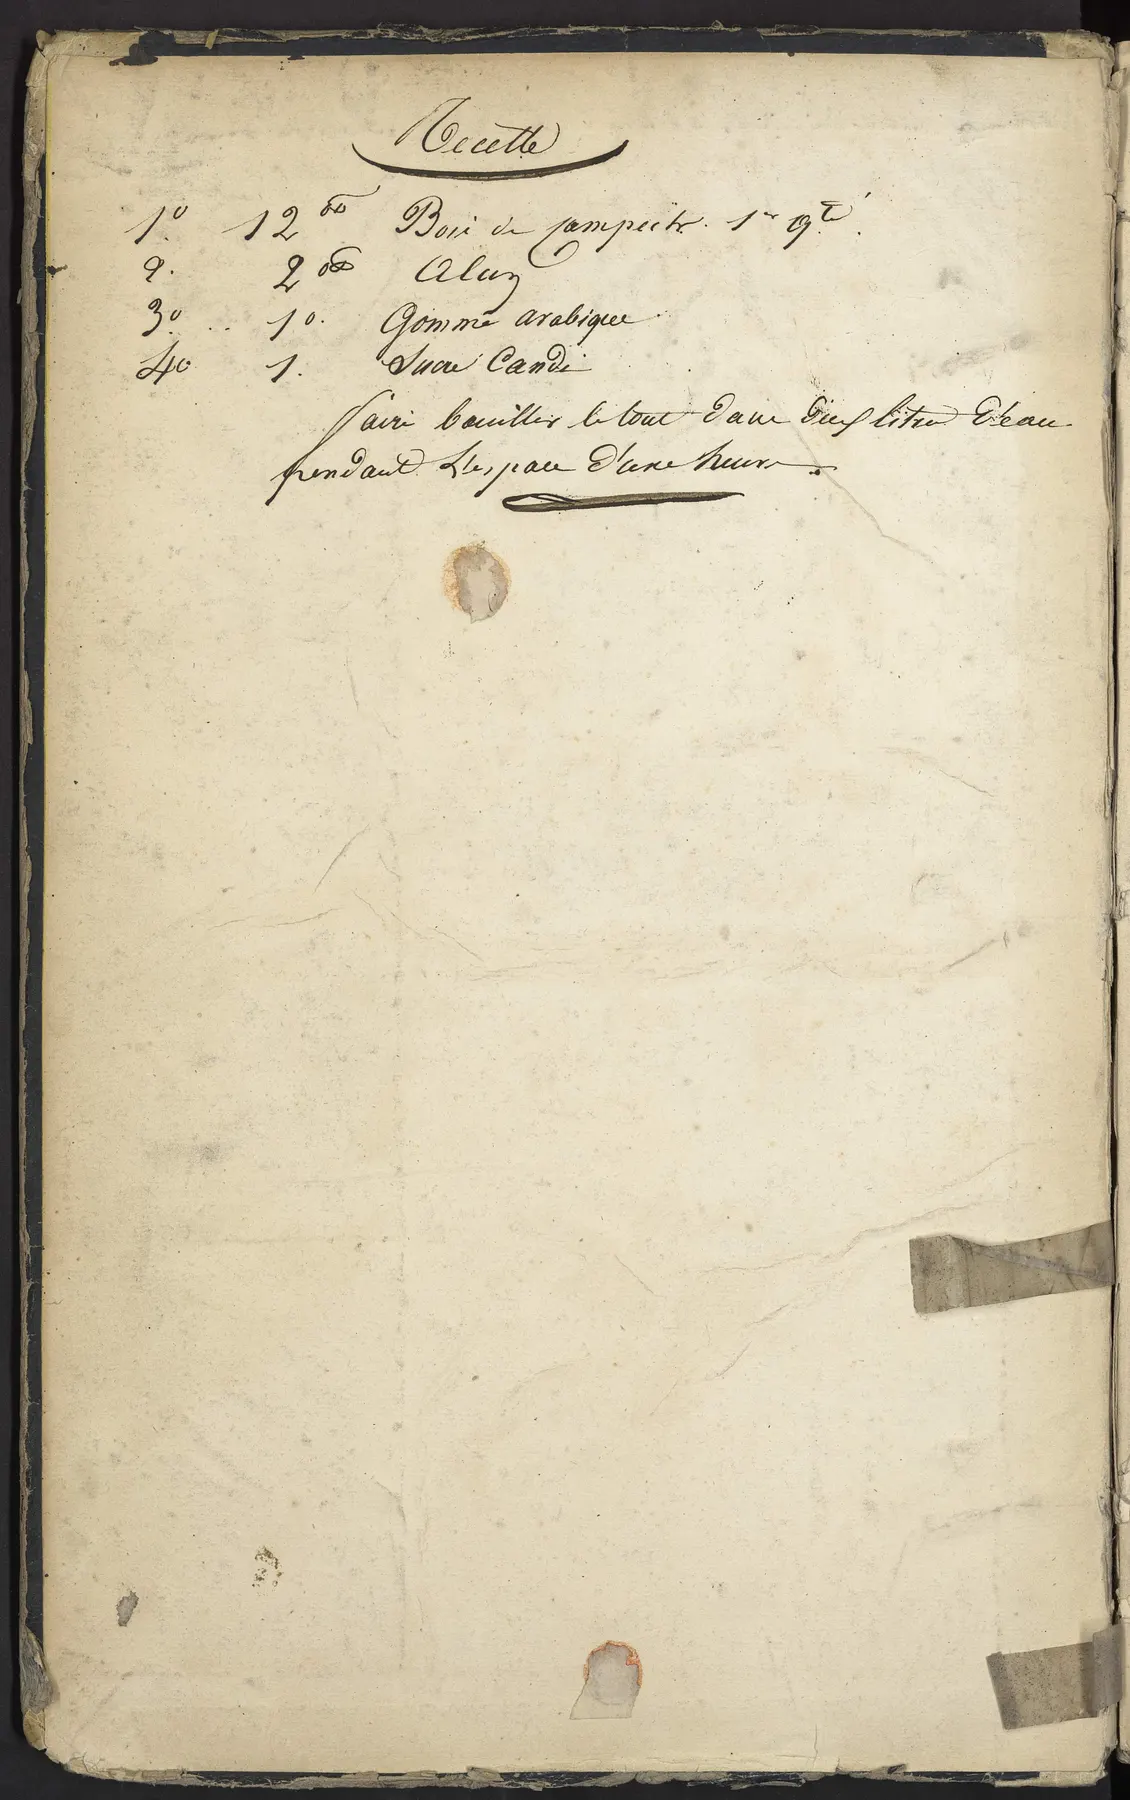 Recette
1º 12 on Bois de campech. 1re qté.
2. 2 on Alun
3º .. 1º. Gomme arabique
4º 1. Sucre Candi
faire bouillir le tout dans deux litres d'eau
pendant l'espace d'une heure.